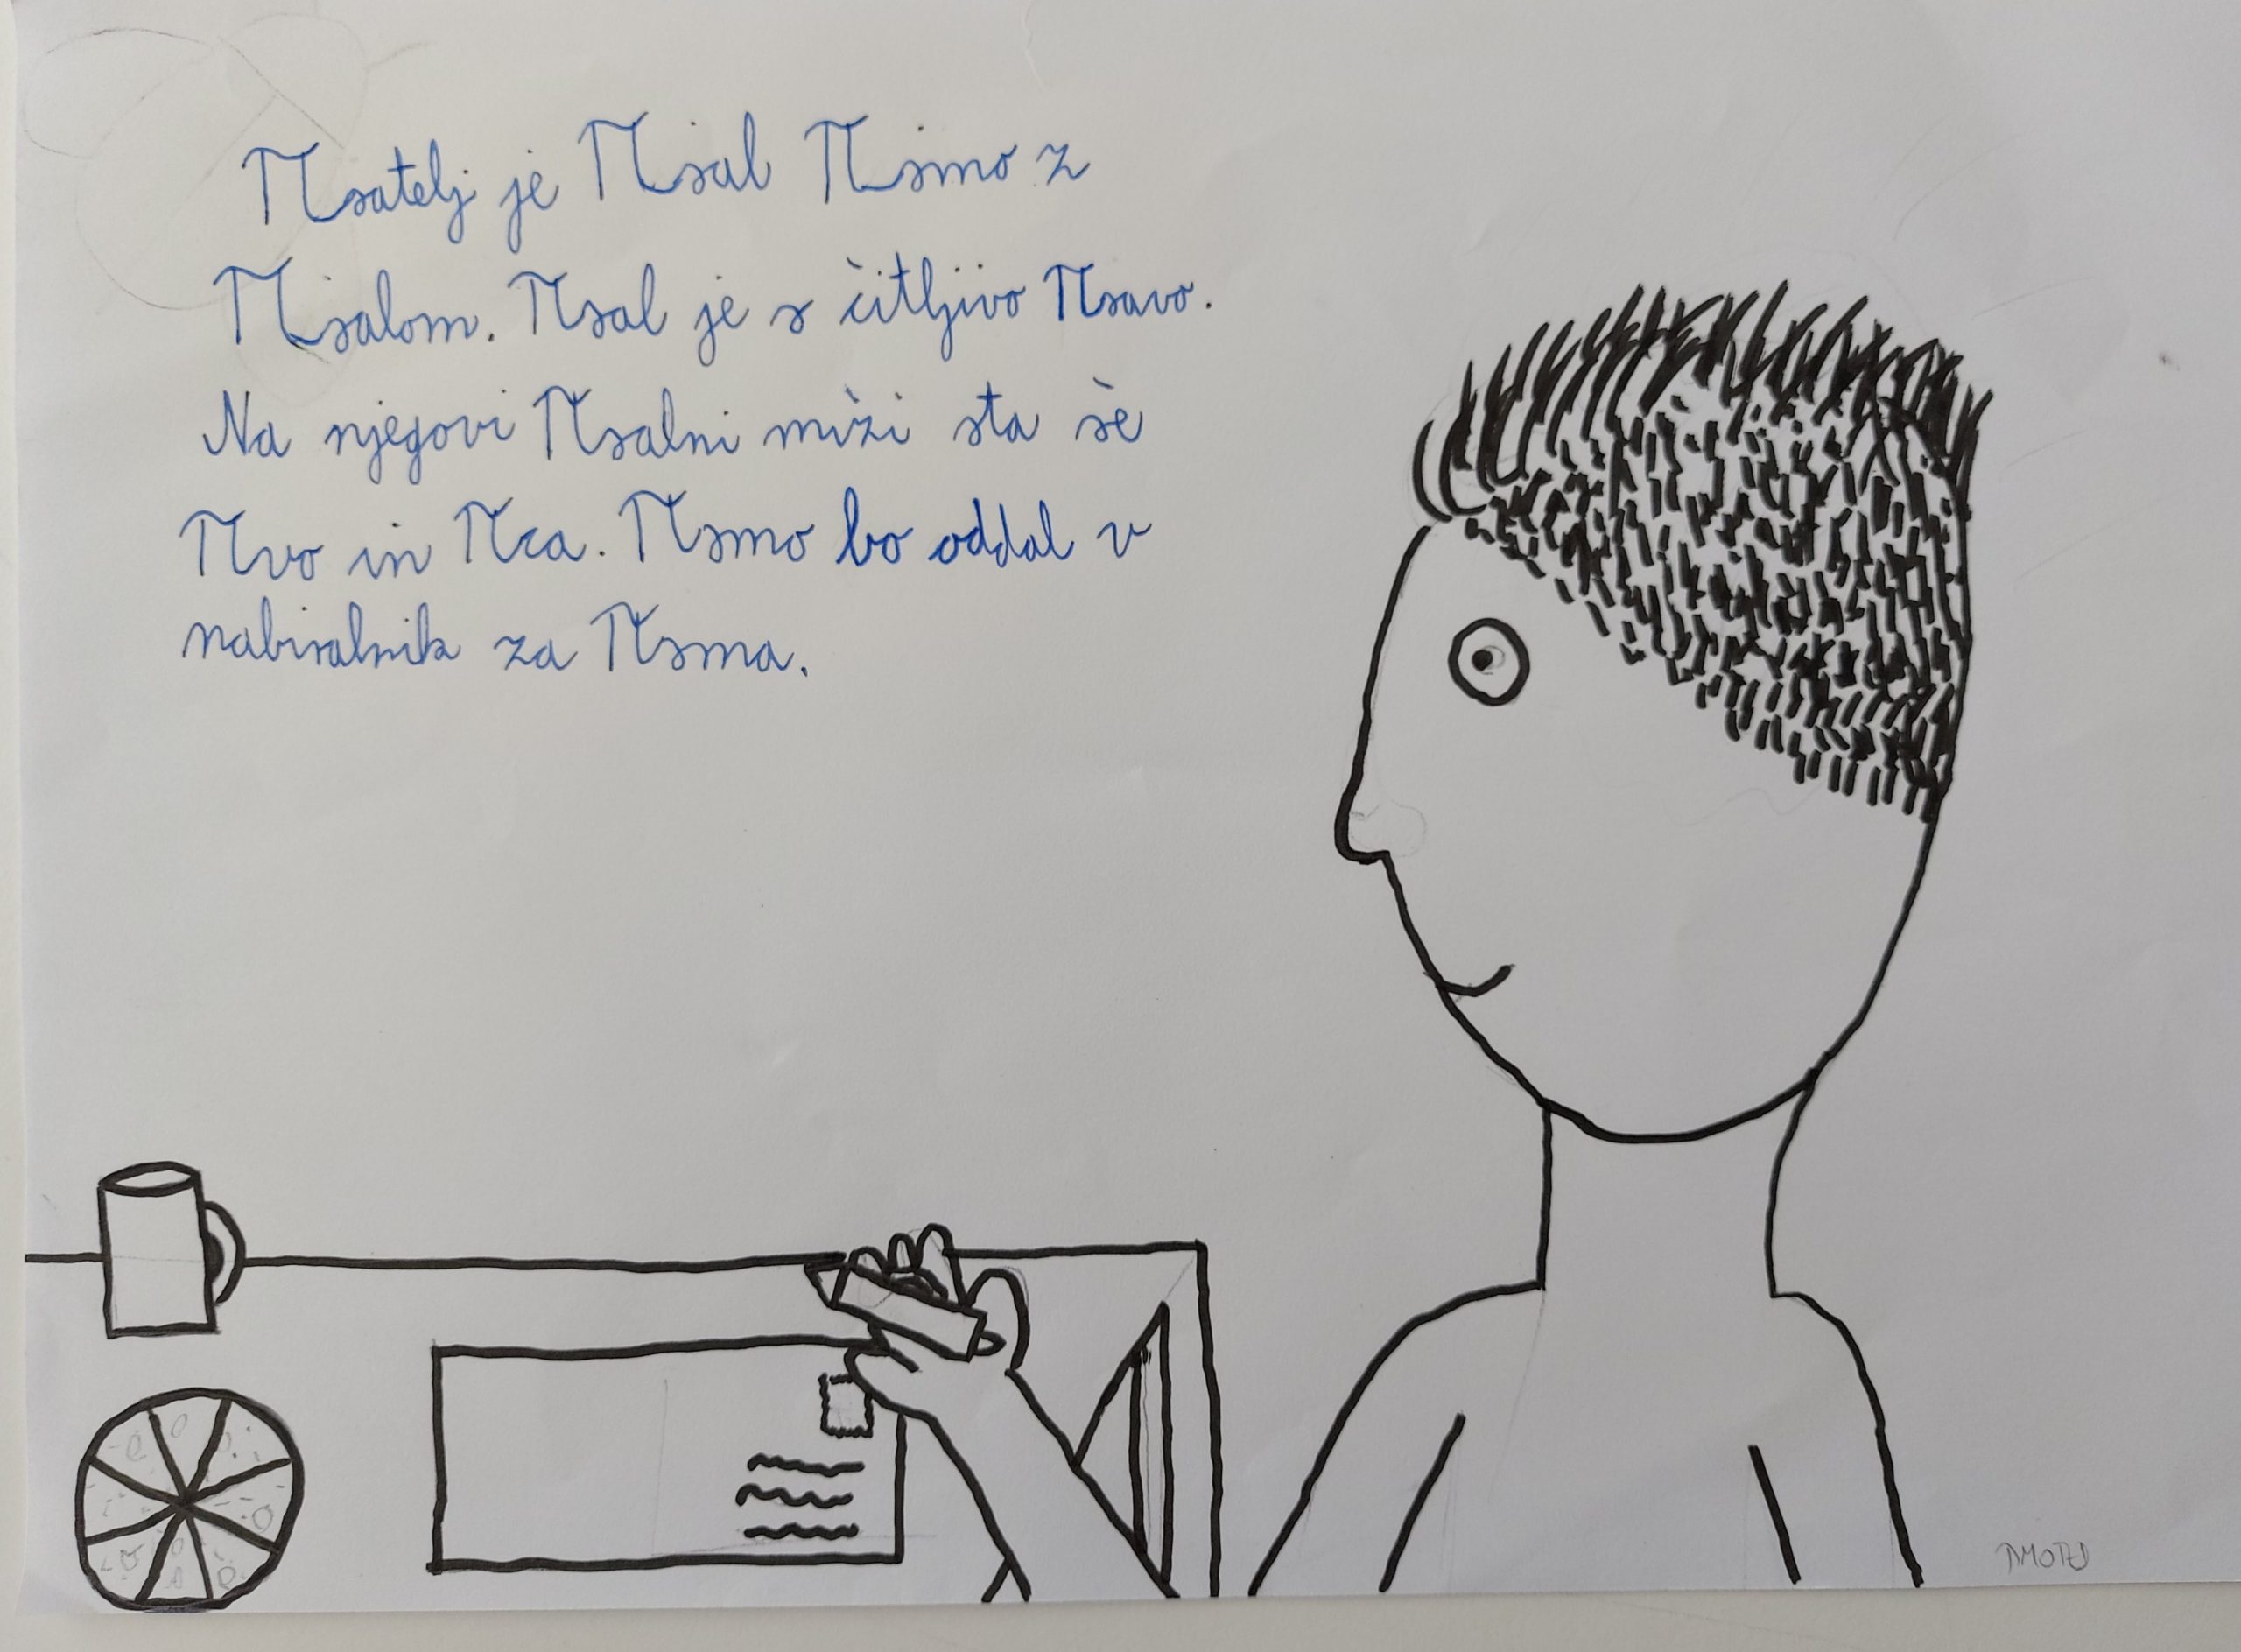 πsatelj je πsal πsmo z
πsalom. πsal je s čitljivo πsavo.
Na njegovi πsalni mizi sta še
πvo in πca. πsmo bo oddal v
nabiralnik za πsma.